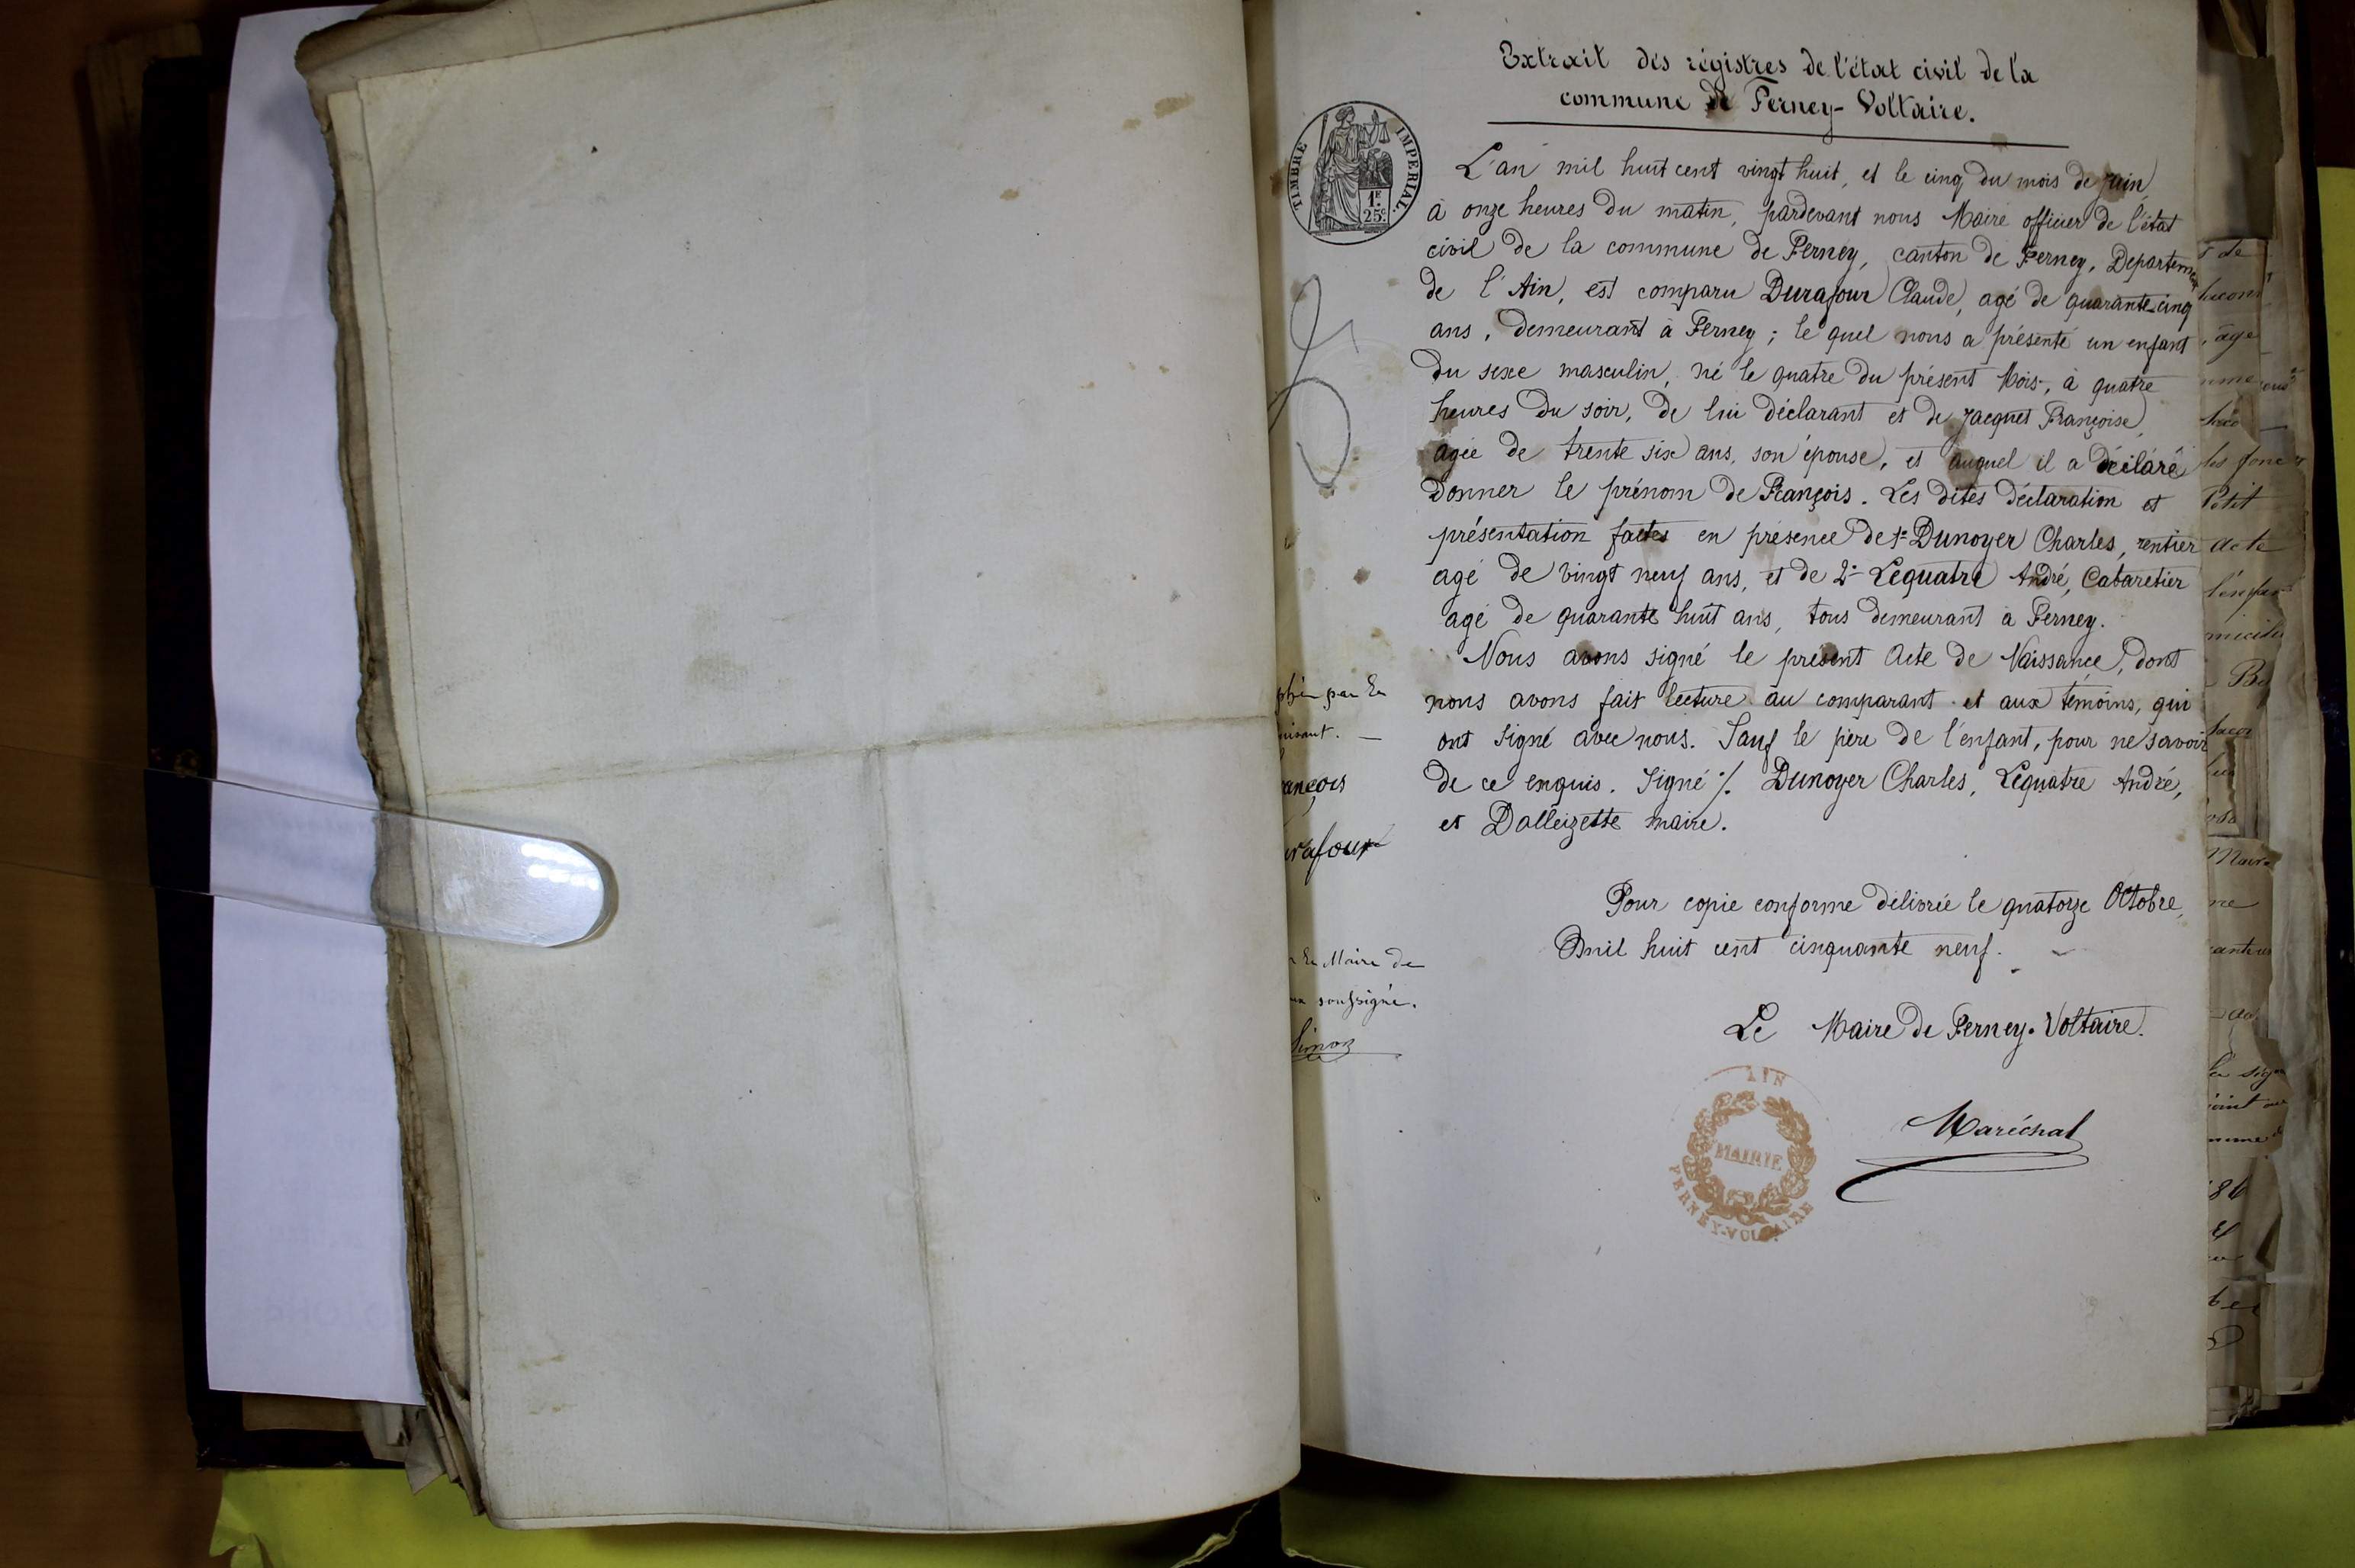 Extrait des régistres de l'état civil de la
commune de Ferney-Voltaire.
TIMBRE IMPERIAL.
1F.
25c
L'an mil huit cent vingt huit, et le cinq du mois de juin,
à onze heures du matin, pardevant nous Maire officier de l'état
civil de la commune de Ferney, canton de Ferney, Departement
de l'Ain, est comparu Durafour Claude, agé de quarante-cinq
ans, demeurant à Ferney; le quel nous a présenté un enfant
du sexe masculin, né le quatre du présent Mois, à quatre
heures du soir, de lui déclarant et de Jacquet Françoise,
agée de trente six ans, son épouse, et auquel il a déclaré
donner le prénom de François. Les dites déclaration et
présentation faites en présence de 1º Dunoyer Charles, rentier
agé de vingt neuf ans, et de 2º Lequatre André, Cabaretier
agé de quarante huit ans, tous demeurant à Ferney.
Nous avons signé le présent Acte de Naissance, dont
nous avons fait lecture au comparant et aux témoins, qui
ont signé avec nous. Sauf le père de l'enfant, pour ne savoir
de ce enquis. Signé %. Dunoyer Charles, Lequatre André,
et Dalleizette maire.
Pour copie conforme délivrée le quatorze Octobre,
mil huit cent cinquante neuf.
Le Maire de Ferney-Voltaire.
Maréchal
AIN
MAIRIE
FERNEY-VOLTAIRE
par le
ançois
rafour
Le Maire de
soussigné.
Simon
âge
Petit
acte
Maire